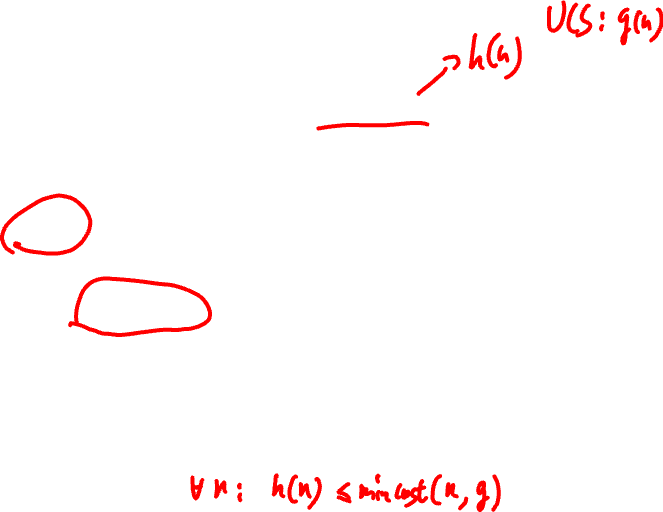 UCS: g(n)
h(n)
∀n: h(n) ≤ min cost(n, g)